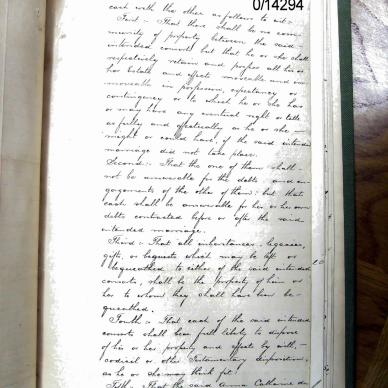 0/14294
each with the other as follows to wit:-
First:- That there shall be no com-
munity of property between the said
intended consorts but that he or she shall
respectively retain and possess all his or
her Estate and effects moveable and im-
moveable in possession, expectancy or
contingency or to which he or she has
or may have any eventual right or title
as fully and effectually as he or she
might or could have, if the said intended
marriage did not take place.
Second:- That the one of them shall
not be answerable for the debts and en-
gagements of the other of them; but that
each shall be answerable for his or her own
debts contracted before or after the said
intended marriage.
Third:- That all inheritances, legacies,
gifts, or bequests which may be left or
bequeathed to either of the said intended
consorts, shall be the property of him or
her to whom they shall have been be-
queathed.
Fourth:- That each of the said intended
consorts shall have full liberty to dispose
of his or her property and effects by will,
codicil or other Testamentary disposition,
as he or she may think fit.
Fifth:- That the said Anna Catharina de